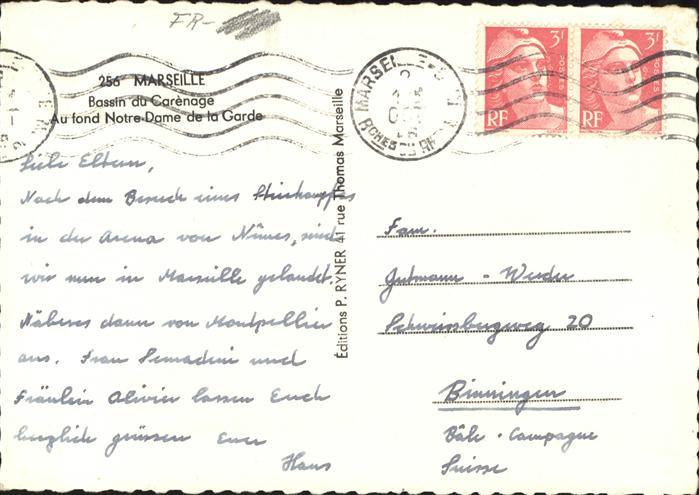 FR-
256 MARSEILLE
Bassin du Carénage
Au fond Notre-Dame de la Garde
Liebe Eltern,
Nach dem Besuch eines Stierkampfes
in der Arena von Nîmes, sind
wir nun in Marseille gelandet.
Näheres dann von Montpellier
aus. Frau Semadeni und
Fräulein Olivier lassen Euch
herzlich grüssen Euer
Hans
Éditions P. RYNER 41 rue Thomas Marseille
MARSEILLE
BCHES DU RH
3F
POSTES
RF
3F
POSTES
RF
Fam.
Gutmann - Werder
20
Binningen
Bâle-Campagne
Suisse